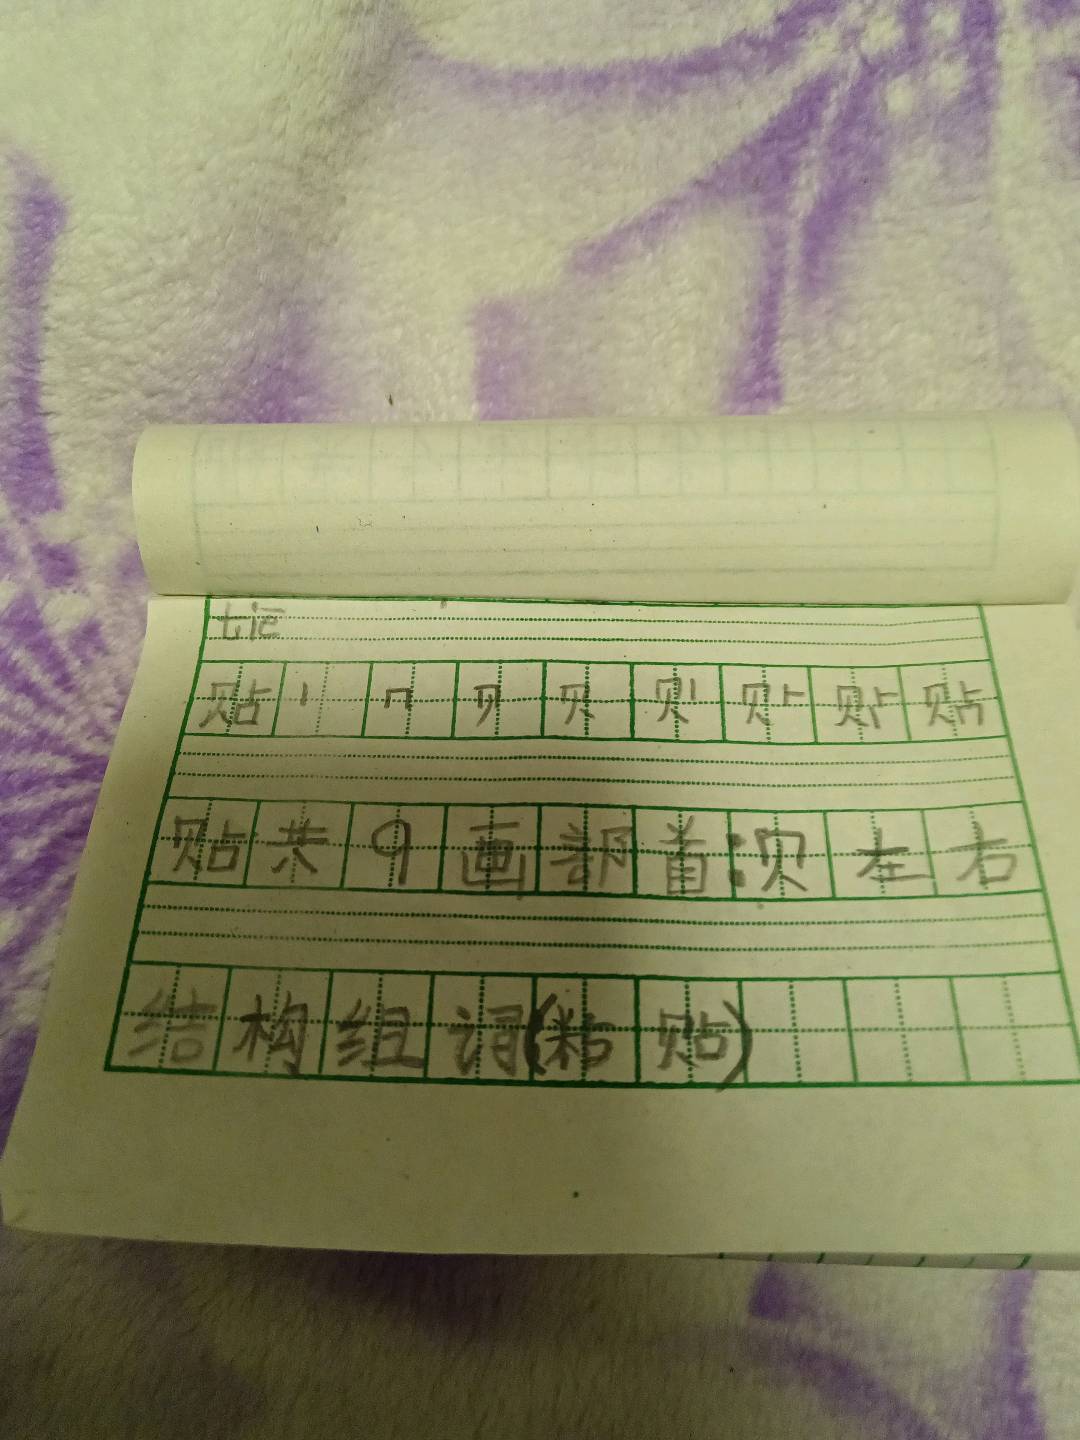 tiē
贴丨冂贝贝贝丨贝卜贴贴
贴共9画部首:贝左右
结构组词(粘贴)